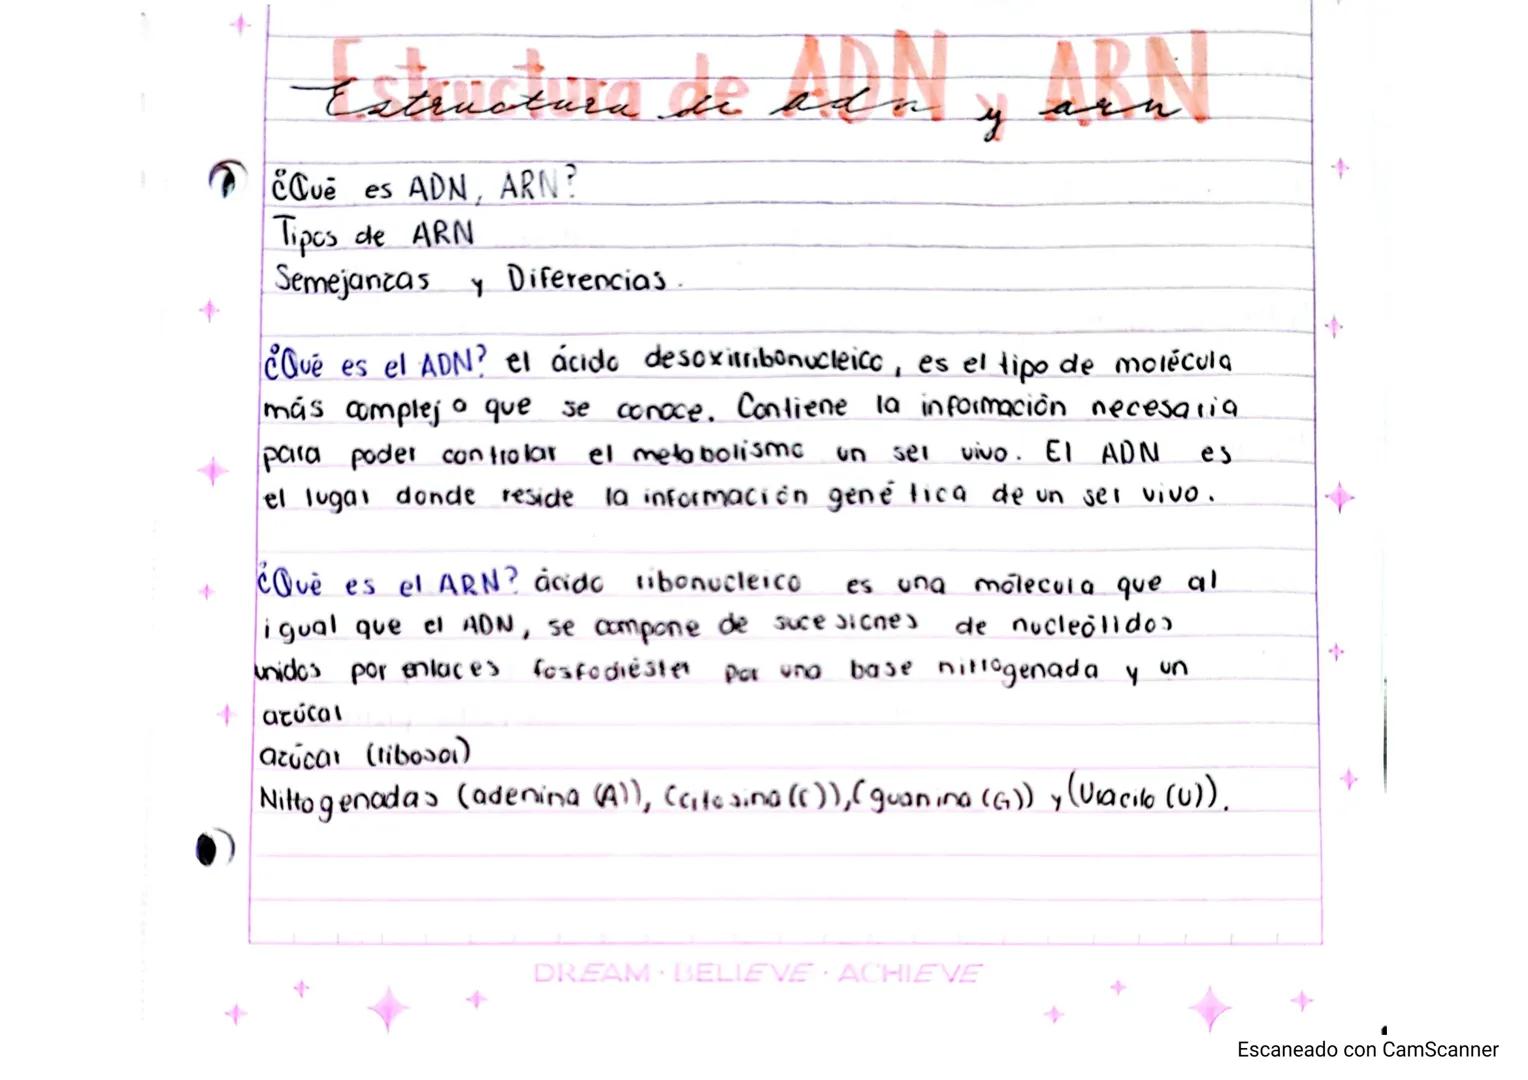 Estructura de ADN y ARN
Estructura de adn y arn
¿Qué es ADN, ARN?
Tipos de ARN
Semejanzas y Diferencias.
¿Qué es el ADN? el ácido desoxirribonucleico, es el tipo de molécula
más complejo que se conoce. Contiene la información necesaria
para poder controlar el metabolismo un ser vivo. El ADN es
el lugar donde reside la información genética de un ser vivo.
¿Qué es el ARN? ácido ribonucleico es una molecula que al
igual que el ADN, se compone de sucesiones de nucleótidos
unidos por enlaces fosfodiéster por una base nitrogenada y un
azúcar
azúcar (ribosar)
Nitrogenadas (adenina (A)), (citosina (C)), (guanina (G)) y (Uracilo (U)).
DREAM · BELIEVE · ACHIEVE
Escaneado con CamScanner